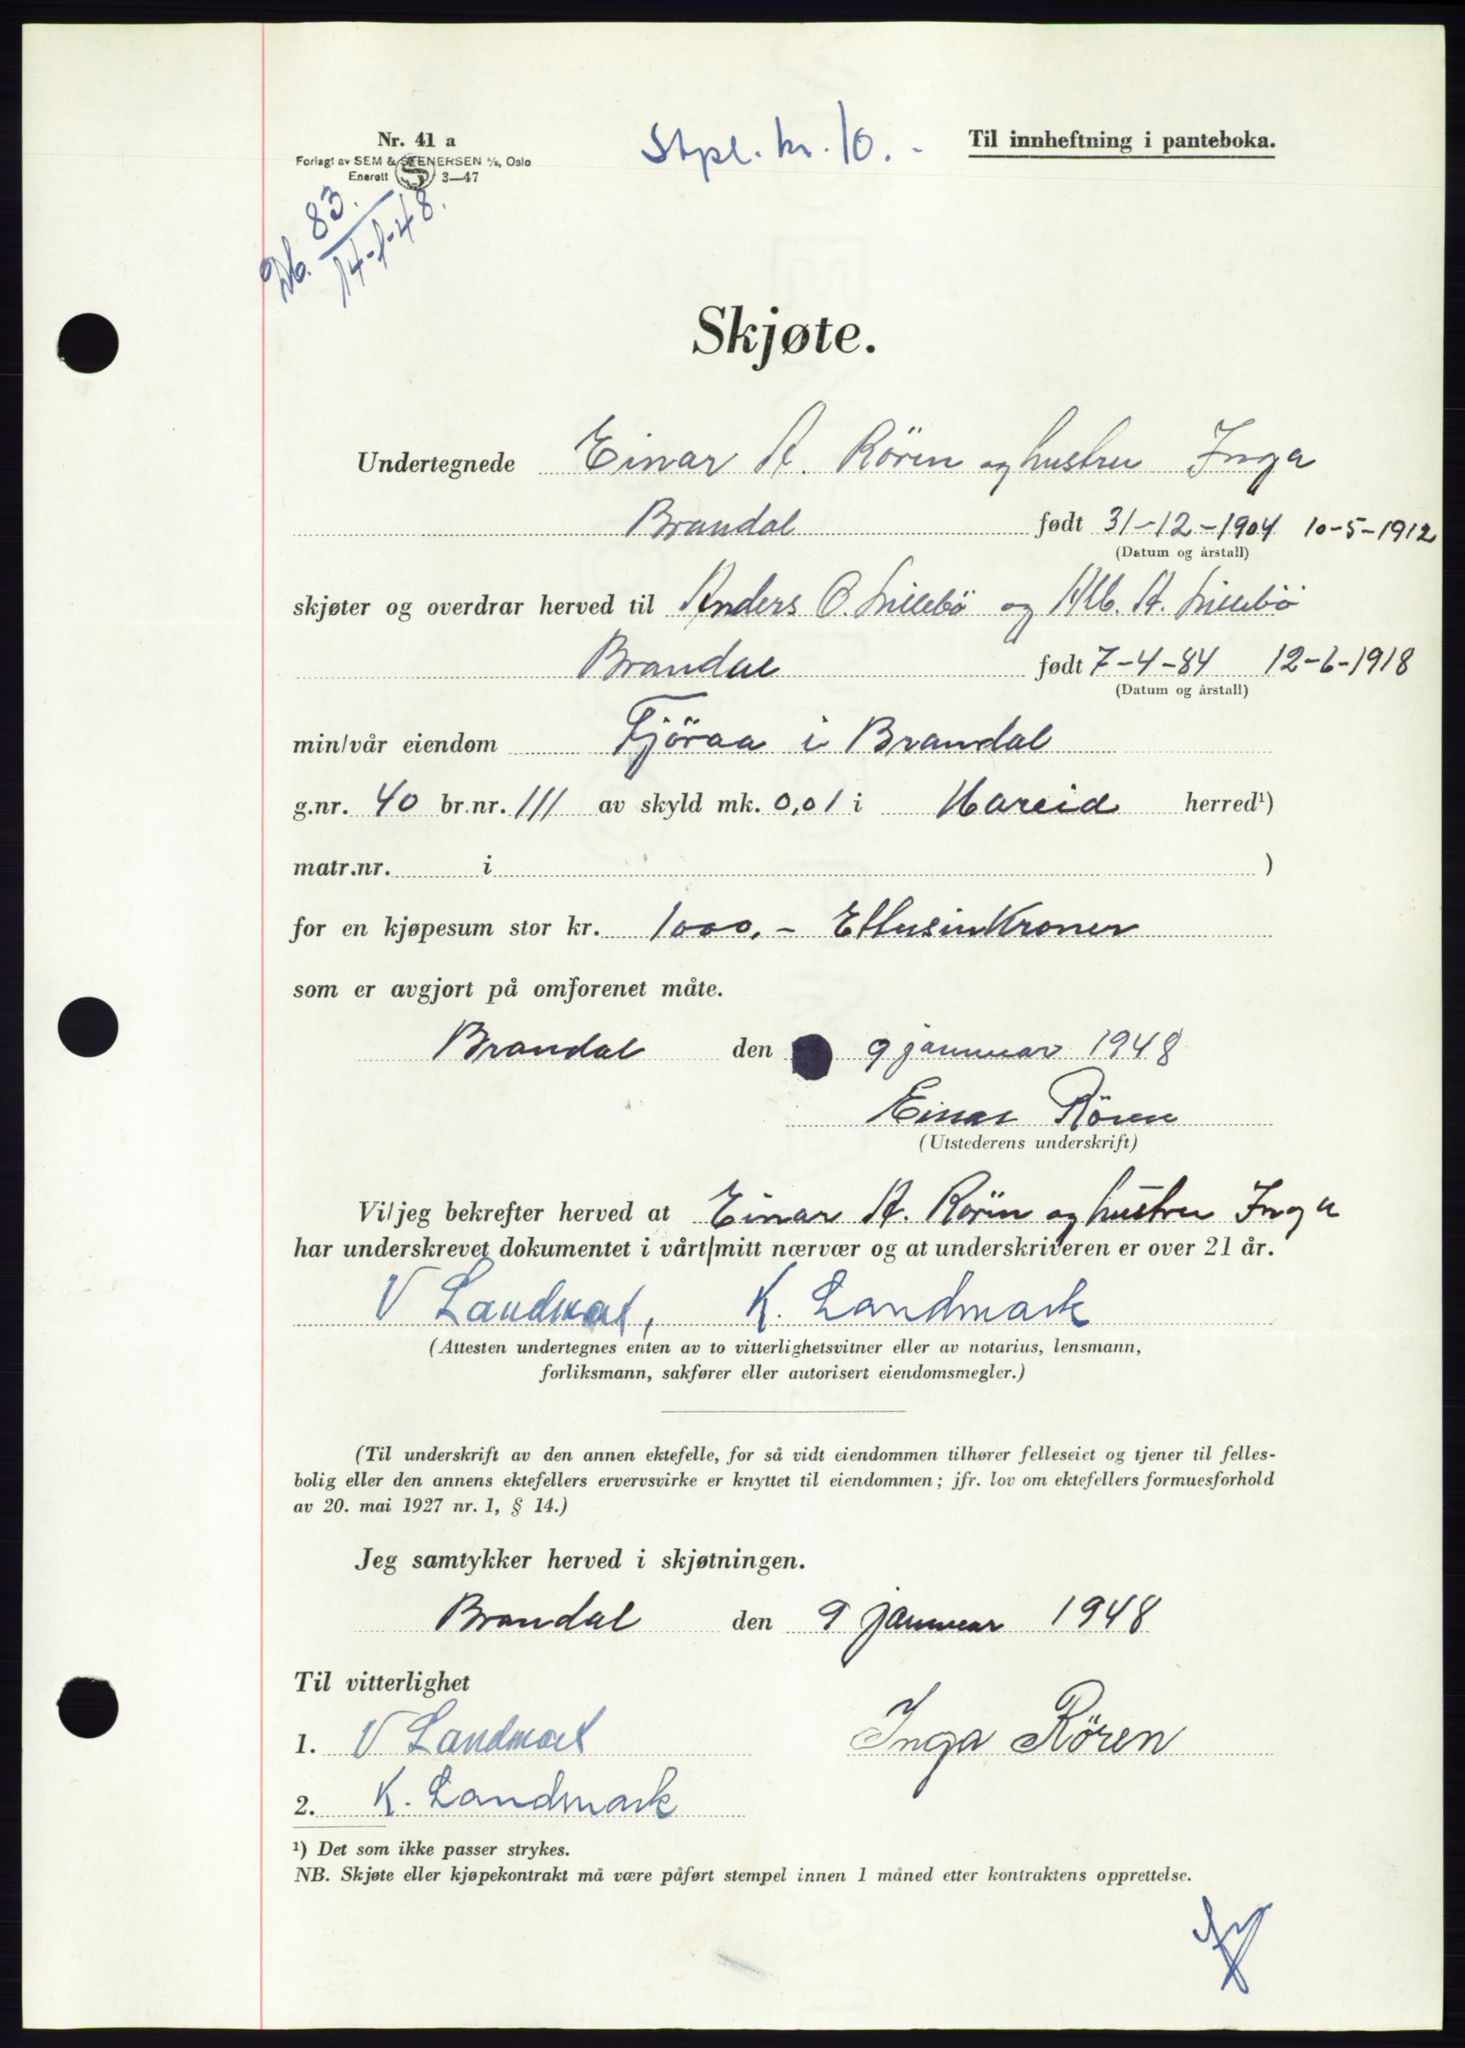 Nr. 41 a
Forlagt av SEM & STENERSEN A/S, Oslo
Enerett 3—47
Stpl. kr. 10.-
Til innheftning i panteboka.
Db. 83.
14-1-48.
Skjøte.
Undertegnede Einar A. Rören og hustru Inga
Brandal født 31-12-1904 10-5-1912
(Datum og årstall)
skjøter og overdrar herved til Anders O. Lillebö og Alb. A. Lillebö
Brandal født 7-4-84 12-6-1918
(Datum og årstall)
min/vår eiendom Fjöraa i Brandal
g.nr. 40 br.nr. 111 av skyld mk. 0,01 i Hareid herred¹)
matr.nr. i )
for en kjøpesum stor kr. 1000.- Ettusin Kroner
som er avgjort på omforenet måte.
Brandal den 9 januar 1948
Einar Rören
(Utstederens underskrift)
Vi/jeg bekrefter herved at Einar A. Rören og hustru Inga
har underskrevet dokumentet i vårt/mitt nærvær og at underskriveren er over 21 år.
V Landmark, K. Landmark
(Attesten undertegnes enten av to vitterlighetsvitner eller av notarius, lensmann,
forliksmann, sakfører eller autorisert eiendomsmegler.)
(Til underskrift av den annen ektefelle, for så vidt eiendommen tilhører felleseiet og tjener til felles-
bolig eller den annens ektefellers ervervsvirke er knyttet til eiendommen; jfr. lov om ektefellers formuesforhold
av 20. mai 1927 nr. 1, § 14.)
Jeg samtykker herved i skjøtningen.
Brandal den 9 januar 1948
Til vitterlighet
1. V Landmark Inga Rören
2. K. Landmark
¹) Det som ikke passer strykes.
NB. Skjøte eller kjøpekontrakt må være påført stempel innen 1 måned etter kontraktens opprettelse.